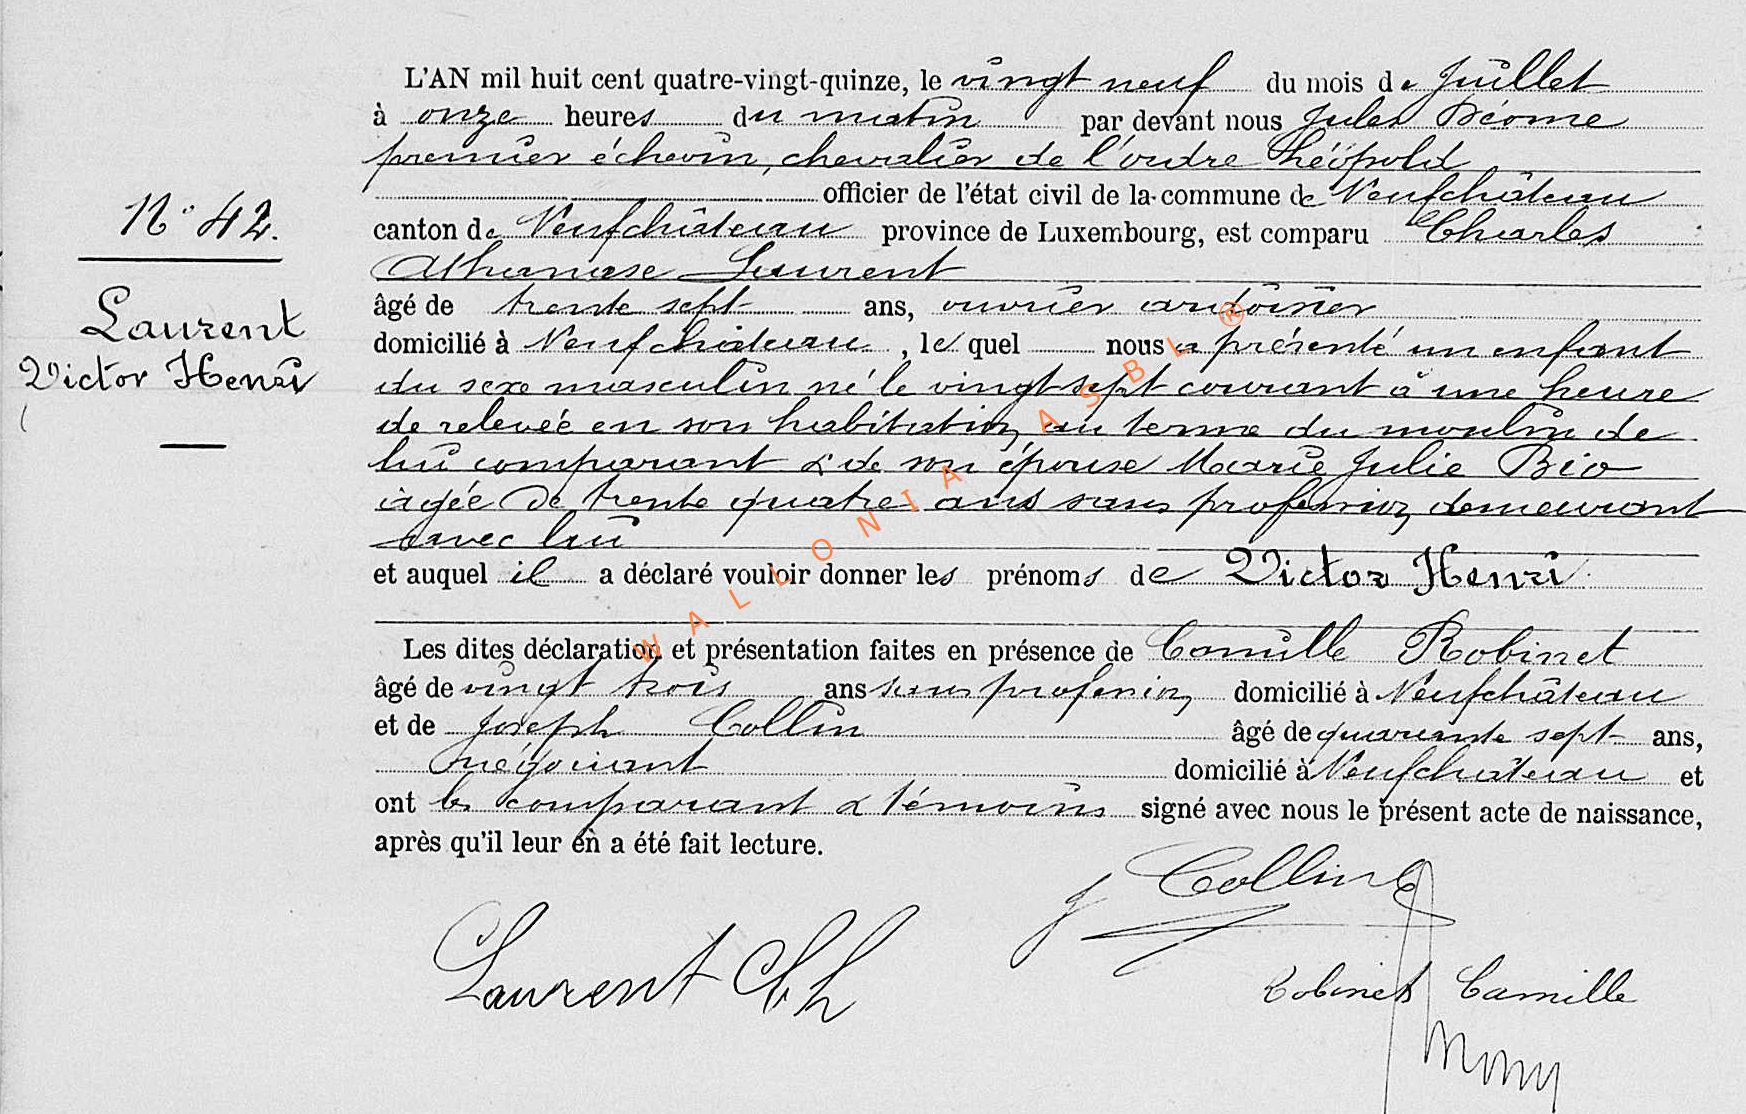 N° 42.
Laurent
Victor Henri
L'AN mil huit cent quatre-vingt-quinze, le vingt neuf du mois de Juillet
à onze heures du matin par devant nous Jules Déome
premier échevin, chevalier de l'ordre Léopold
officier de l'état civil de la commune de Neufchâteau
canton de Neufchâteau province de Luxembourg, est comparu Charles
Athanase Laurent
âgé de trente sept ans, ouvrier ardoisier
domicilié à Neufchâteau, le quel nous a présenté un enfant
du sexe masculin né le vingt sept courant à une heure
de relevée en son habitation, au terme du moulin de
lui comparant & de son épouse Marie Julie Bio
âgée de trente quatre ans sans profession, demeurant
avec lui
et auquel il a déclaré vouloir donner les prénoms de Victor Henri
Les dites déclaration et présentation faites en présence de Camille Robinet
âgé de vingt trois ans sans profession, domicilié à Neufchâteau
et de Joseph Collin âgé de quarante sept ans,
négociant domicilié à Neufchâteau et
ont les comparant & témoins signé avec nous le présent acte de naissance,
après qu'il leur en a été fait lecture.
J Collin
Laurent Ch
Robinet Camille
WALLONIA ASBL ®